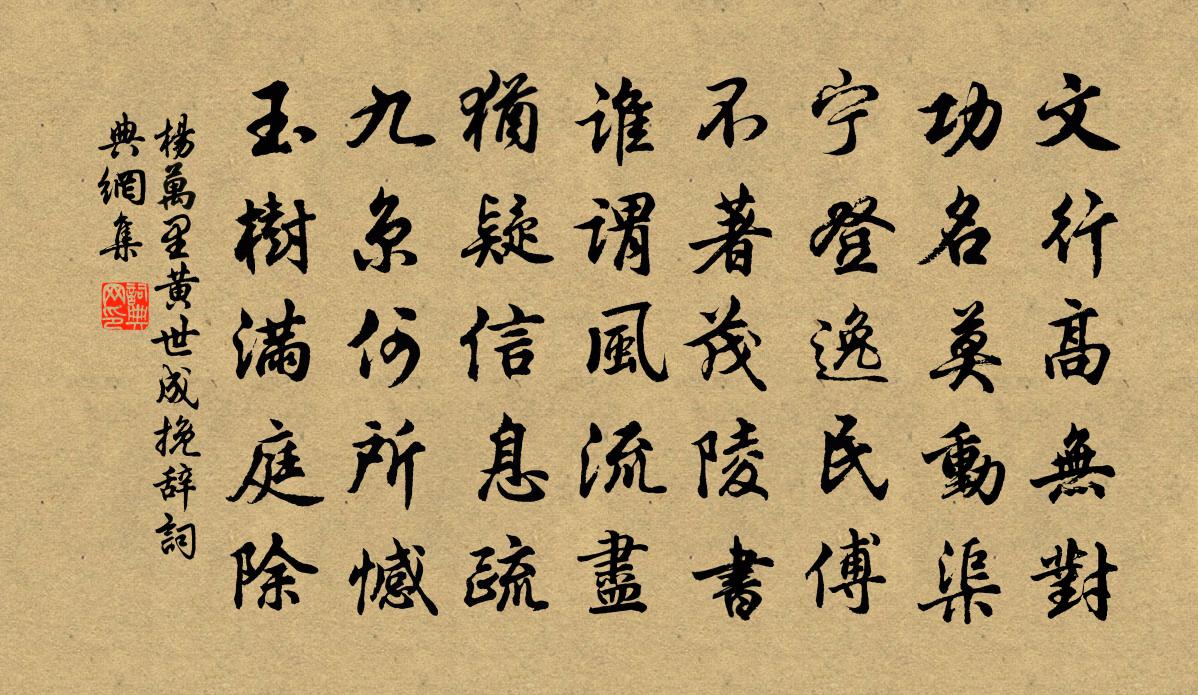 文行高無對
功名莫動渠
宁登逸民傅
不著茂陵書
谁謂風流盡
猶疑信息疏
九原何所憾
玉樹滿庭除
楊萬里黄世成挽辞詞
典網集
詞典
网印